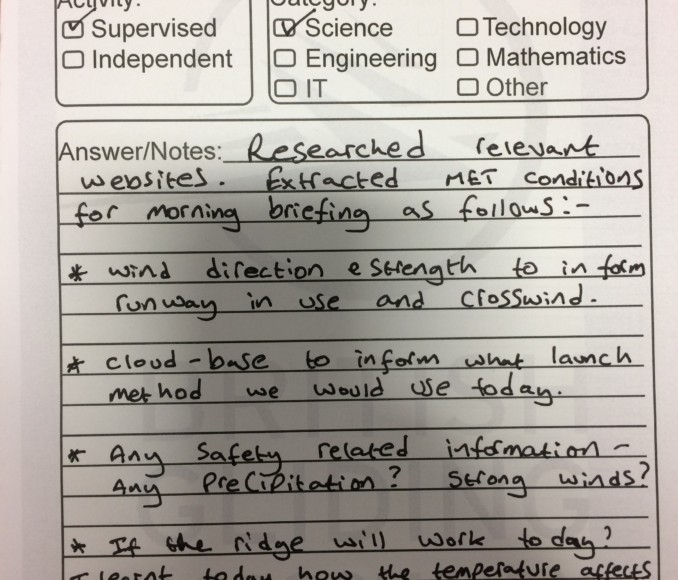 Activity:
Category:
Supervised
Independent
Science
Technology
Engineering
Mathematics
IT
Other
Answer/Notes: Researched relevant
websites. Extracted MET conditions
for morning briefing as follows:-
* wind direction & strength to inform
runway in use and crosswind.
* cloud-base to inform what launch
method we would use today.
* Any Safety related information -
Any Precipitation? Strong winds?
* If the ridge will work today?
I learnt today how the temperature affects
BRITISH
GLIDING